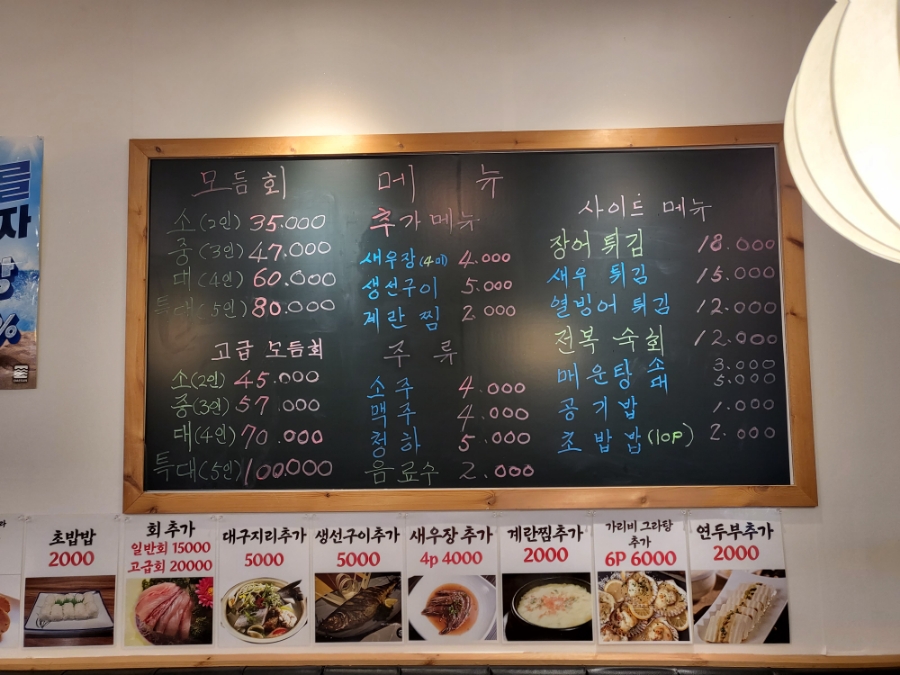 를
자
%
모듬회
소(2인) 35.000
중(3인) 47.000
대(4인) 60.000
특대(5인) 80.000
고급 모듬회
소(2인) 45.000
중(3인) 57.000
대(4인) 70.000
특대(5인) 100000
메 뉴
추가메뉴
새우장(4미) 4.000
생선구이 5.000
계란찜 2.000
주 류
소주 4.000
맥주 4.000
청하 5.000
음료수 2.000
사이드 메뉴
장어 튀김 18.000
새우 튀김 15.000
열빙어 튀김 12.000
전복 숙회 12.000
매운탕 소 3.000
대 5.000
공기밥 1.000
초밥밥(10P) 2.000
초밥밥
2000
회 추가
일반회 15000
고급회 20000
대구지리추가
5000
생선구이추가
5000
새우장 추가
4p 4000
계란찜추가
2000
가리비 그라탕
추가
6P 6000
연두부추가
2000